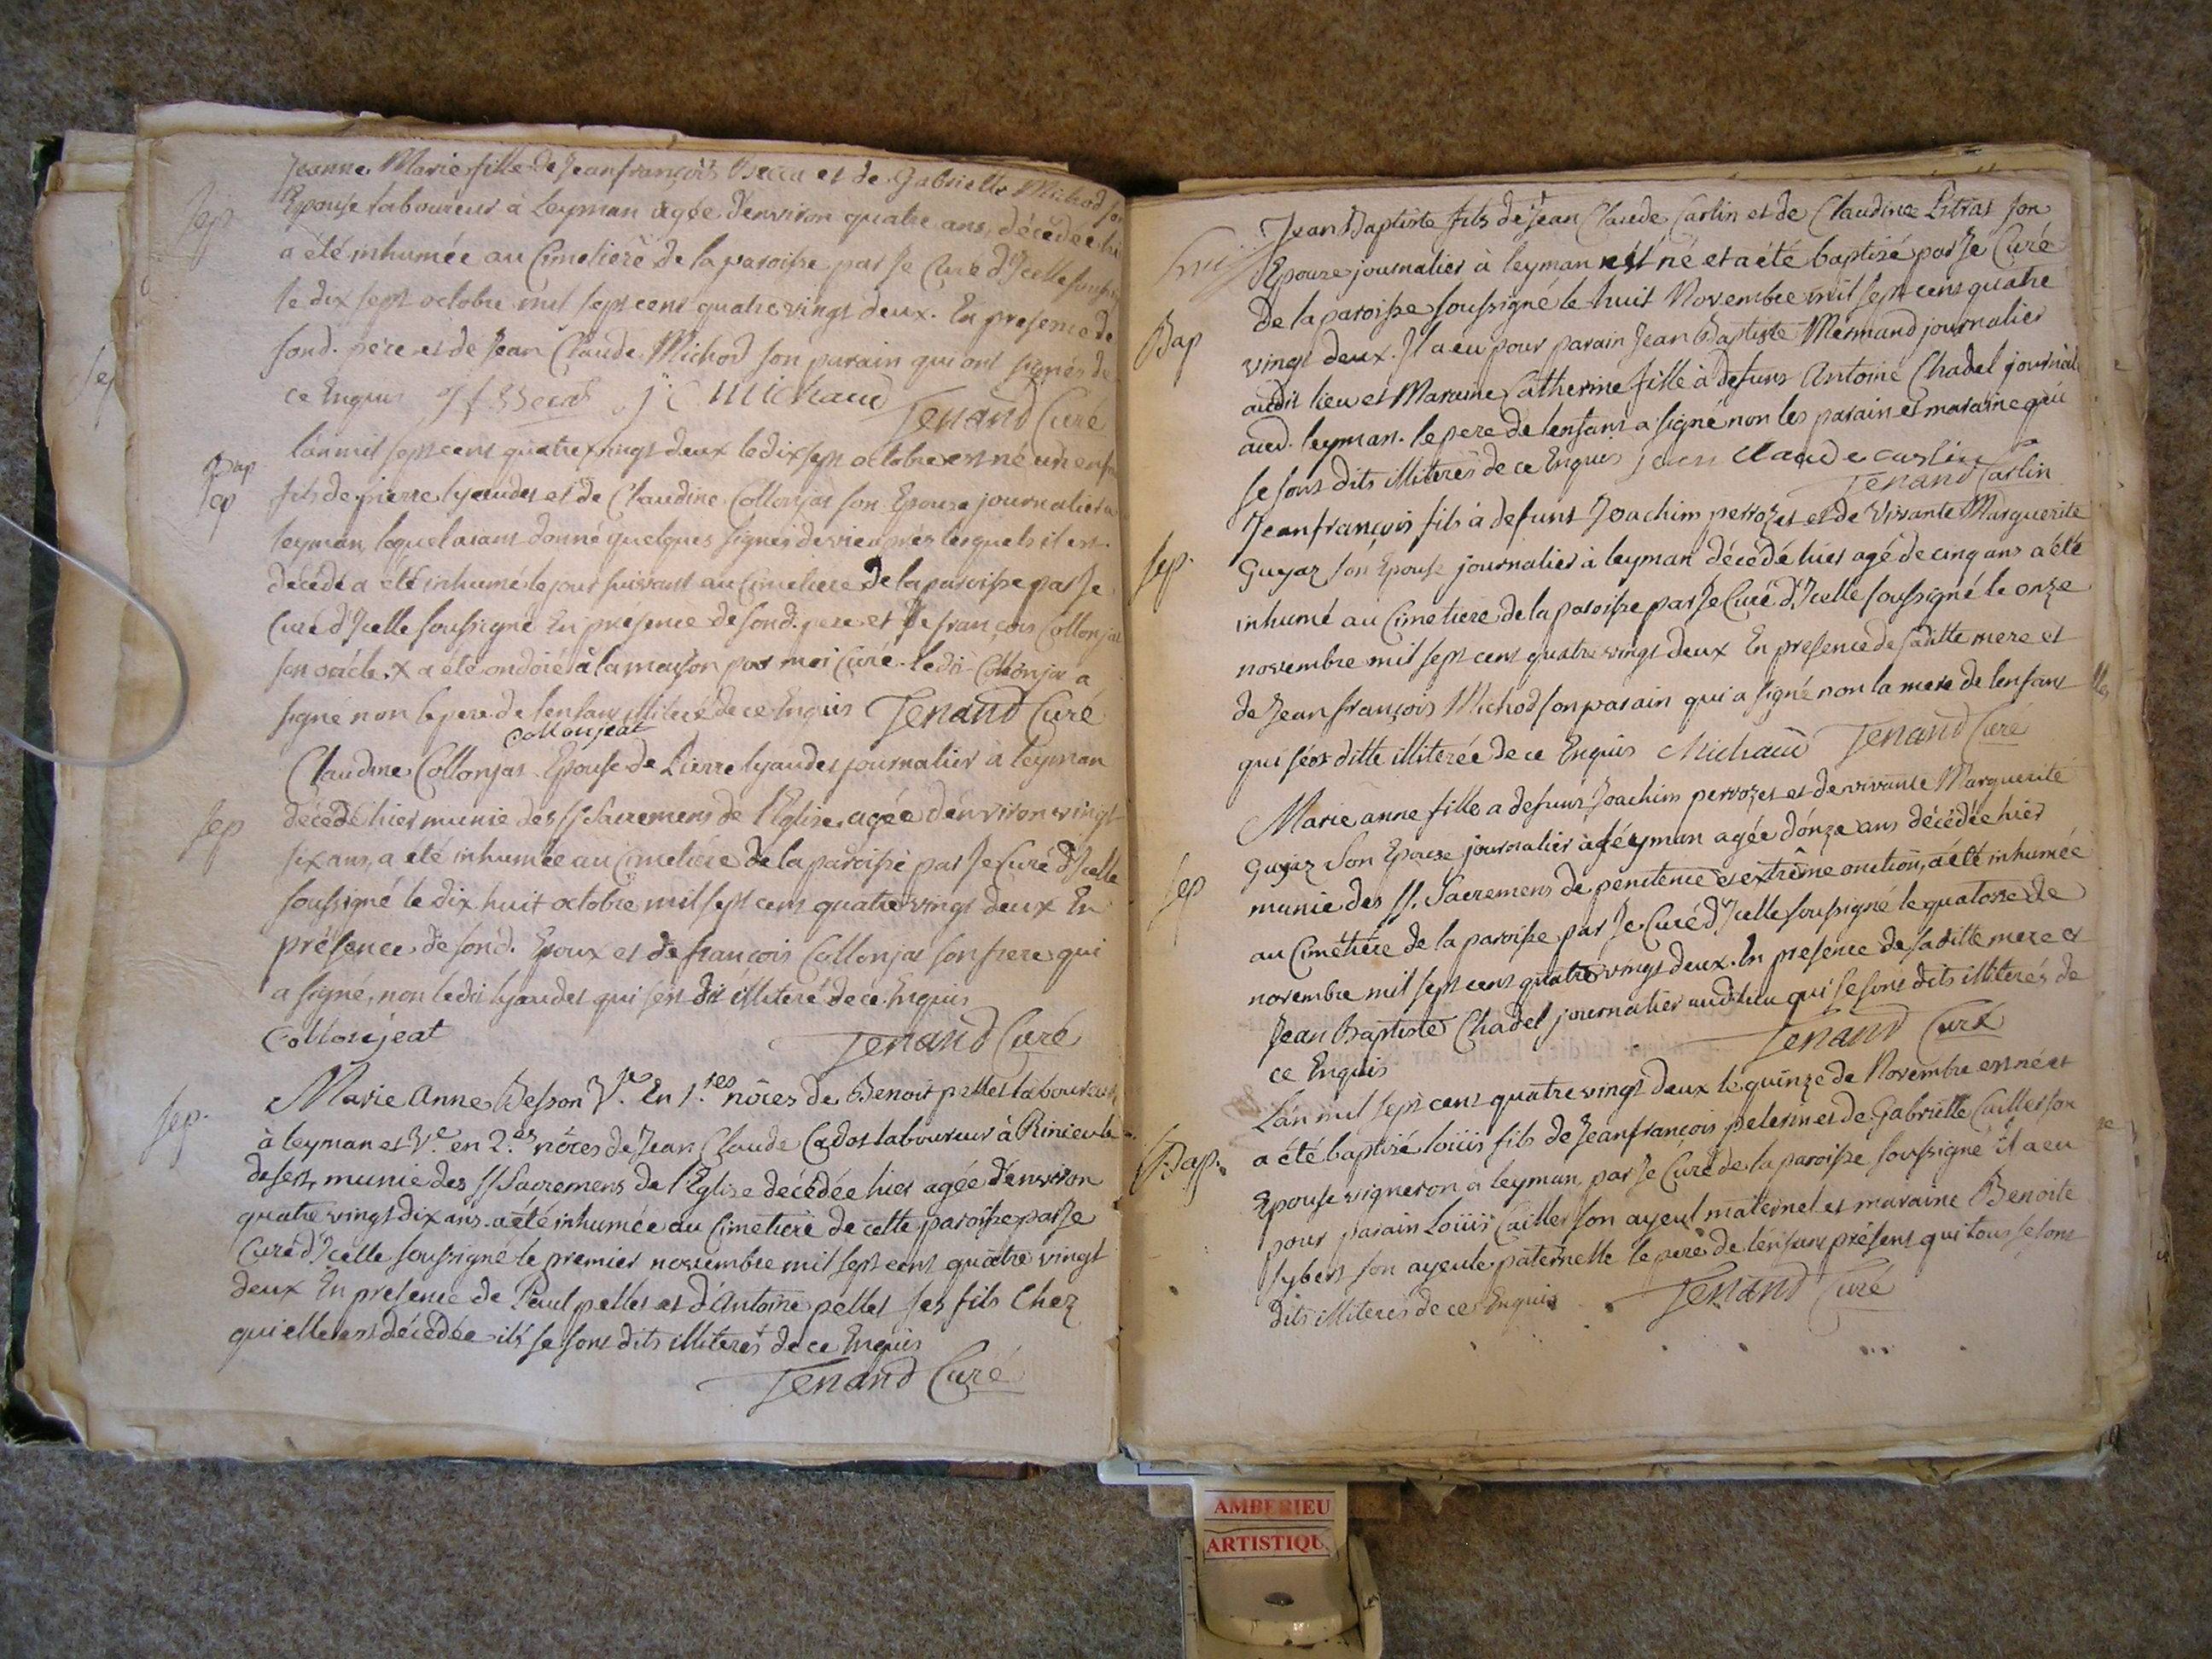 Jeanne Marie fille de Jean françois Becca et de Gabrielle Michod son
Sep
Epouse laboureur à Leyman agée d'environ quatre ans, décédée hier
a été inhumée au Cimetiere de la paroisse par Je Curé d'Icelle soussigné
le dix sept octobre mil sept cens quatre vingt deux. En presence de
sond. père et de Jean Claude Michod son parain qui ont signés de
ce Enquis J C Michaud Tenand Curé
Bap
Sep
l'an mil sept cens quatre vingt deux le dix sept octobre est né un enfant
fils de pierre lyaudet et de Claudine Collonjat son Epouse journalier a
leyman, lequel aiant donné quelques signes de vie après lesquels il est
décédé a été inhumé le jour suivant au Cimetiere de la paroisse par Je
Curé d'Icelle soussigné En présence de sond. pere et de françois Collonjat
son oncle. X a été ondoié à la maison par moi Curé. ledit Collonja a
signé non le pere de l'enfant illiteré de ce Enquis Tenand Curé
Collonjeat
Claudine Collonjat Epouse de Pierre lyaudet journalier à leyman
Sep
décedé hier munie des SS Sacremens de l'Eglise, agée d'environ vingt
six ans, a été inhumée au Cimetiere de la paroisse par Je Curé d'Icelle
soussigné le dix huit octobre mil sept cens quatre vingt deux En
présence de sond. Epoux et de françois Collonjat son frere qui
a signé, non ledit lyaudet qui s'est dit illiteré de ce Enquis
Collonjeat Tenand Curé
Sep.
Marie Anne Besson Ve. En 1.res nôces de Benoit pellet laboureur
à leyman et Ve. en 2.es nôces de Jean Claude Cadot laboureur à Rinieu le
desert, munie des SS Sacremens de l'Eglise décédée hier agée d'environ
quatre vingt dix ans. a été inhumée au Cimetiere de cette paroisse par Je
Curé d'Icelle soussigné le premier novembre mil sept cens quatre vingt
deux En presence de Paul pellet et d'Antoine pellet ses fils Chez
qui elle est décédée ils se sont dits illiterés de ce Enquis
Tenand Curé
Jean Baptiste fils de Jean Claude Carlin et de Claudine Litras son
Epouze journalier à leyman est né et a été baptisé par Je Curé
Bap
de la paroisse soussigné le huit Novembre mil sept cens quatre
vingt deux. Il a eu pour parain Jean Baptiste Mermand journalier
audit lieu et Maraine Catherine fille à defunt Antoine Chadel journal
aud. leyman. le pere de l'enfant a signé non les parain et maraine qui
se sont dits illiterés de ce Enquis jean claude carlin
Tenand Carlin
Jean françois fils à defunt Joachim perrozet et de vivante Marguerite
Sep.
Guyaz son Epouse journalier à leyman décédé hier agé de cinq ans a été
inhumé au Cimetiere de la paroisse par Je Curé d'Icelle soussigné le onze
novembre mil sept cent quatre vingt deux En presence de sa ditte mere et
de Jean françois Michod son parain qui a signé non la mere de l'enfant
qui s'est ditte illiterée de ce Enquis Michaud Tenand Curé
Marie anne fille a defunt Joachim perrozet et de vivante Marguerite
Sep
Guyaz Son Epouze journalier à leyman agée d'onze ans décédée hier
munie des SS. Sacremens de penitence et extrême onction, a été inhumée
au Cimétiere de la paroisse par Je Curé d'Icelle soussigné le quatorze de
novembre mil sept cens quatre vingt deux. En presence de sa ditte mere et
Jean Baptiste Chadel journalier audit lieu qui se sont dits illiterés de
ce Enquis Tenand Curé
L'an mil sept cens quatre vingt deux le quinze de Novembre est né et
Bap.
a été baptisé loüis fils de Jean françois pelerin et de Gabrielle Caillet son
Epouse vigneron à leyman, par Je Curé de la paroisse soussigné il a eu
pour parain Loüis Caillet son ayeul maternel et maraine Benoite
Sybert son ayeule paternelle le pere de l'enfant présent qui tous se sont
dits illiterés de ce Enquis Tenand Curé
AMBERIEU
ARTISTIQU